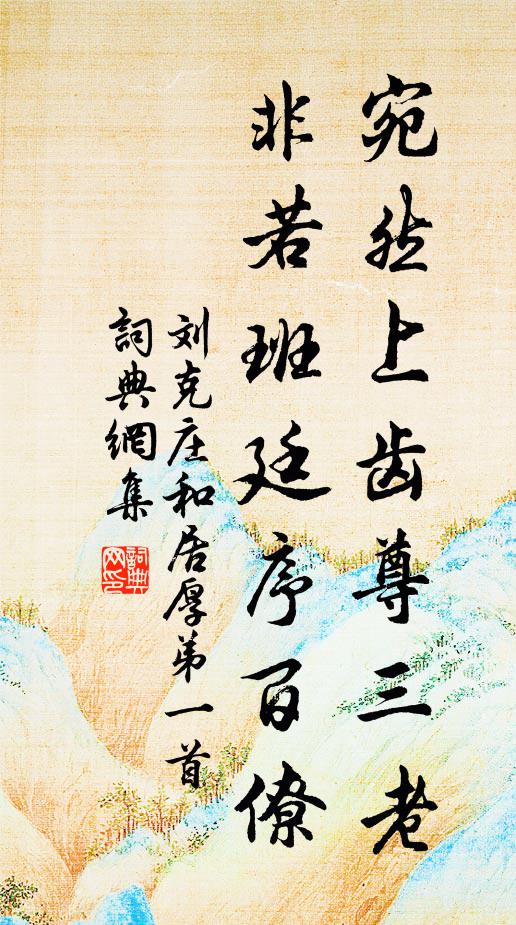 宛然上齿尊三老
非若班廷序百僚
刘克庄和居厚弟一首
詞典網集
詞典
网印